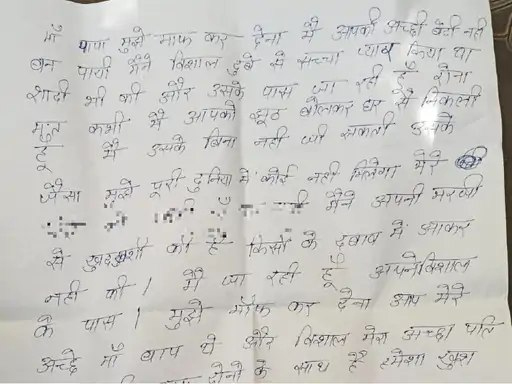 माँ पापा मुझे माफ कर देना मैं आपकी अच्छी बेटी नही
बन पायी मैंने विशाल दुबे से सच्चा प्यार किया था
शादी भी की और उसके पास जा रही हूँ रोना
मत कभी मैं आपको झूठ बोलकर घर से निकली
हूँ मैं उसके बिना नही जी सकती उसके
जैसा मुझे पूरी दुनिया में कोई नही मिलेगा मेरे
मैंने अपनी मरजी
से खुदखुशी की है किसी के दबाव में आकर
नही की। मैं जा रही हूँ अपने विशाल
के पास। मुझे माफ कर देना आप मेरे
अच्छे माँ बाप थे और विशाल मेरा अच्छा पति
दोनो के साथ है हमेशा खुश